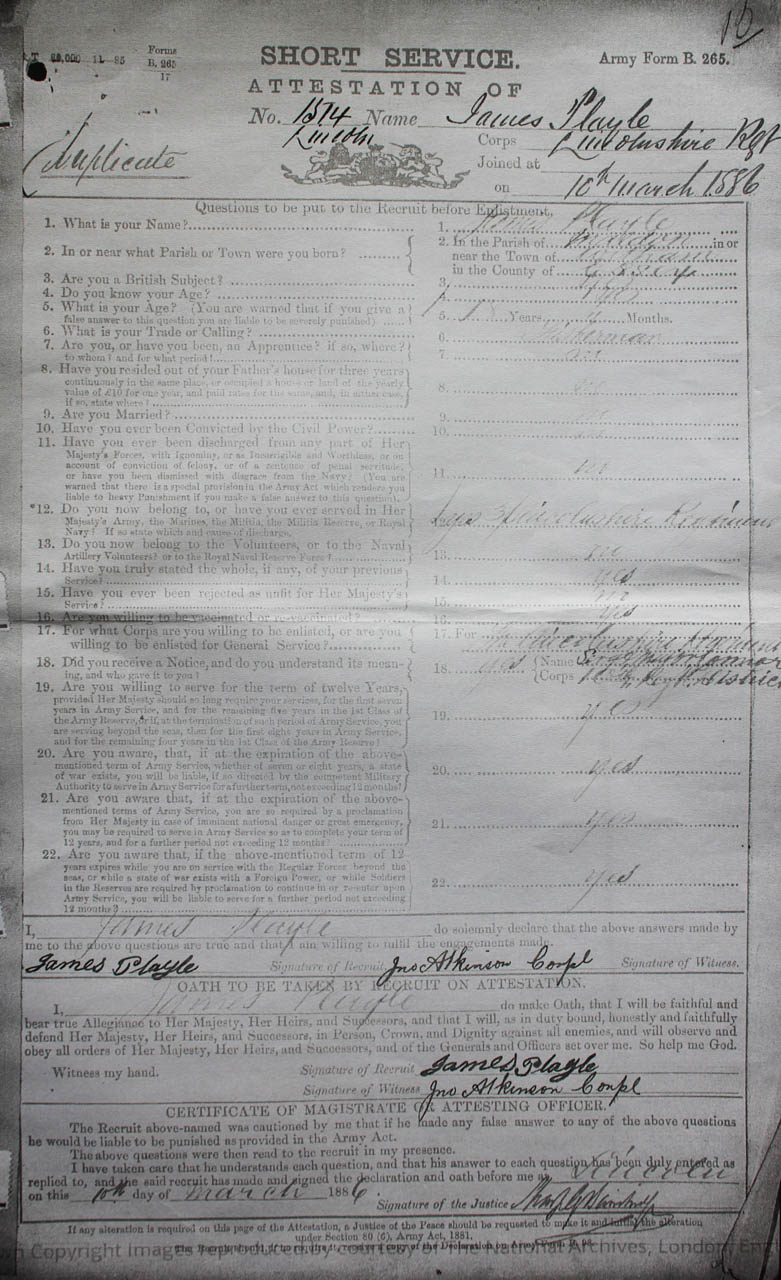 10
Forms
B. 265
17
SHORT SERVICE.
Army Form B. 265.
ATTESTATION OF
No. 1574 Name James Playle
Lincoln
Duplicate
Corps Lincolnshire Rgt
Joined at
on 10th March 1886
Questions to be put to the Recruit before Enlistment.
1. What is your Name?
1. James Playle
2. In or near what Parish or Town were you born?
2. In the Parish of in or
near the Town of
in the County of Essex
3. Are you a British Subject?
3.
4. Do you know your Age?
5. What is your Age? (You are warned that if you give a
false answer to this question you are liable to be severely punished)
5. Years Months.
6. What is your Trade or Calling?
6.
7. Are you, or have you been, an Apprentice? if so, where?
to whom? and for what period?
7. no
8. Have you resided out of your Father's house for three years
continuously in the same place, or occupied a house or land of the yearly
value of £10 for one year, and paid rates for the same, and, in either case,
if so, state where?
8.
9. Are you Married?
9.
10. Have you ever been Convicted by the Civil Power?
10.
11. Have you ever been discharged from any part of Her
Majesty's Forces, with Ignominy, or as Incorrigible and Worthless, or on
account of conviction of felony, or of a sentence of penal servitude,
or have you been dismissed with disgrace from the Navy? (You are
warned that there is a special provision in the Army Act which renders you
liable to heavy Punishment if you make a false answer to this question).
11. no
*12. Do you now belong to, or have you ever served in Her
Majesty's Army, the Marines, the Militia, the Militia Reserve, or Royal
Navy? If so state which and cause of discharge.
yes 3 Lincolnshire Regiment
13. Do you now belong to the Volunteers, or to the Naval
Artillery Volunteers? or to the Royal Naval Reserve Force?
13. no
14. Have you truly stated the whole, if any, of your previous
Service?
14. yes
15. Have you ever been rejected as unfit for Her Majesty's
Service?
15. no
16. Are you willing to be vaccinated or re-vaccinated?
16. yes
17. For what Corps are you willing to be enlisted, or are you
willing to be enlisted for General Service?
17. For The Lincolnshire Regiment
18. Did you receive a Notice, and do you understand its mean-
ing, and who gave it to you?
18. yes Name
Corps District
19. Are you willing to serve for the term of twelve Years,
provided Her Majesty should so long require your services, for the first seven
years in Army Service, and for the remaining five years in the 1st Class of
the Army Reserve, or if, at the termination of such period of Army Service, you
are serving beyond the seas, then for the first eight years in Army Service,
and for the remaining four years in the 1st Class of the Army Reserve?
19. yes
20. Are you aware, that, if at the expiration of the above-
mentioned term of Army Service, whether of seven or eight years, a state
of war exists, you will be liable, if so directed by the competent Military
Authority to serve in Army Service for a further term, not exceeding 12 months?
20. yes
21. Are you aware that, if at the expiration of the above-
mentioned terms of Army Service, you are so required by a proclamation
from Her Majesty in case of imminent national danger or great emergency,
you may be required to serve in Army Service so as to complete your term of
12 years, and for a further period not exceeding 12 months?
21. yes
22. Are you aware that, if the above-mentioned term of 12
years expires while you are on service with the Regular Forces beyond the
seas, or while a state of war exists with a Foreign Power, or while Soldiers
in the Reserves are required by proclamation to continue in or re-enter upon
Army Service, you will be liable to serve for a further period not exceeding
12 months?
22. yes
I, James Playle do solemnly declare that the above answers made by
me to the above questions are true and that I am willing to fulfil the engagements made.
James Playle Signature of Recruit. Jno Atkinson Corpl Signature of Witness.
OATH TO BE TAKEN BY RECRUIT ON ATTESTATION.
I, James Playle do make Oath, that I will be faithful and
bear true Allegiance to Her Majesty, Her Heirs, and Successors, and that I will, as in duty bound, honestly and faithfully
defend Her Majesty, Her Heirs, and Successors, in Person, Crown, and Dignity against all enemies, and will observe and
obey all orders of Her Majesty, Her Heirs, and Successors, and of the Generals and Officers set over me. So help me God.
Witness my hand.
Signature of Recruit James Playle
Signature of Witness Jno Atkinson Corpl
CERTIFICATE OF MAGISTRATE OR ATTESTING OFFICER.
The Recruit above-named was cautioned by me that if he made any false answer to any of the above questions
he would be liable to be punished as provided in the Army Act.
The above questions were then read to the recruit in my presence.
I have taken care that he understands each question, and that his answer to each question has been duly entered as
replied to, and the said recruit has made and signed the declaration and oath before me at Lincoln
on this 10th day of March 1886
Signature of the Justice
If any alteration is required on this page of the Attestation, a Justice of the Peace should be requested to make it and initial the alteration
under Section 80 (6), Army Act, 1881.
The Recruit should, if he require it, receive a copy of the Declaration on Army Form
Copyright Images reproduced by courtesy of The National Archives, London, En